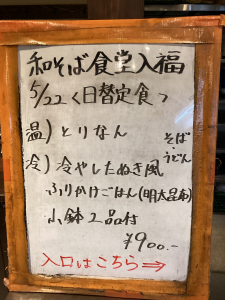 和そば食堂入福
5/22 く日替定食〉
温) とりなん
そば・うどん
冷) 冷やしたぬき風
ふりかけごはん(明太昆布)
小鉢2品付
¥900.-
入口はこちら⇒